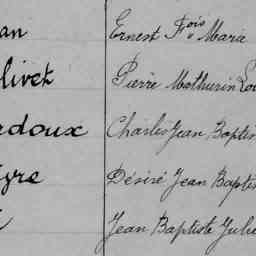 an Ernest Fois Marie
livet Pierre Mathurin Lou
rdoux Charles Jean Baptis
yre Désiré Jean Baptis
Jean Baptiste Julie